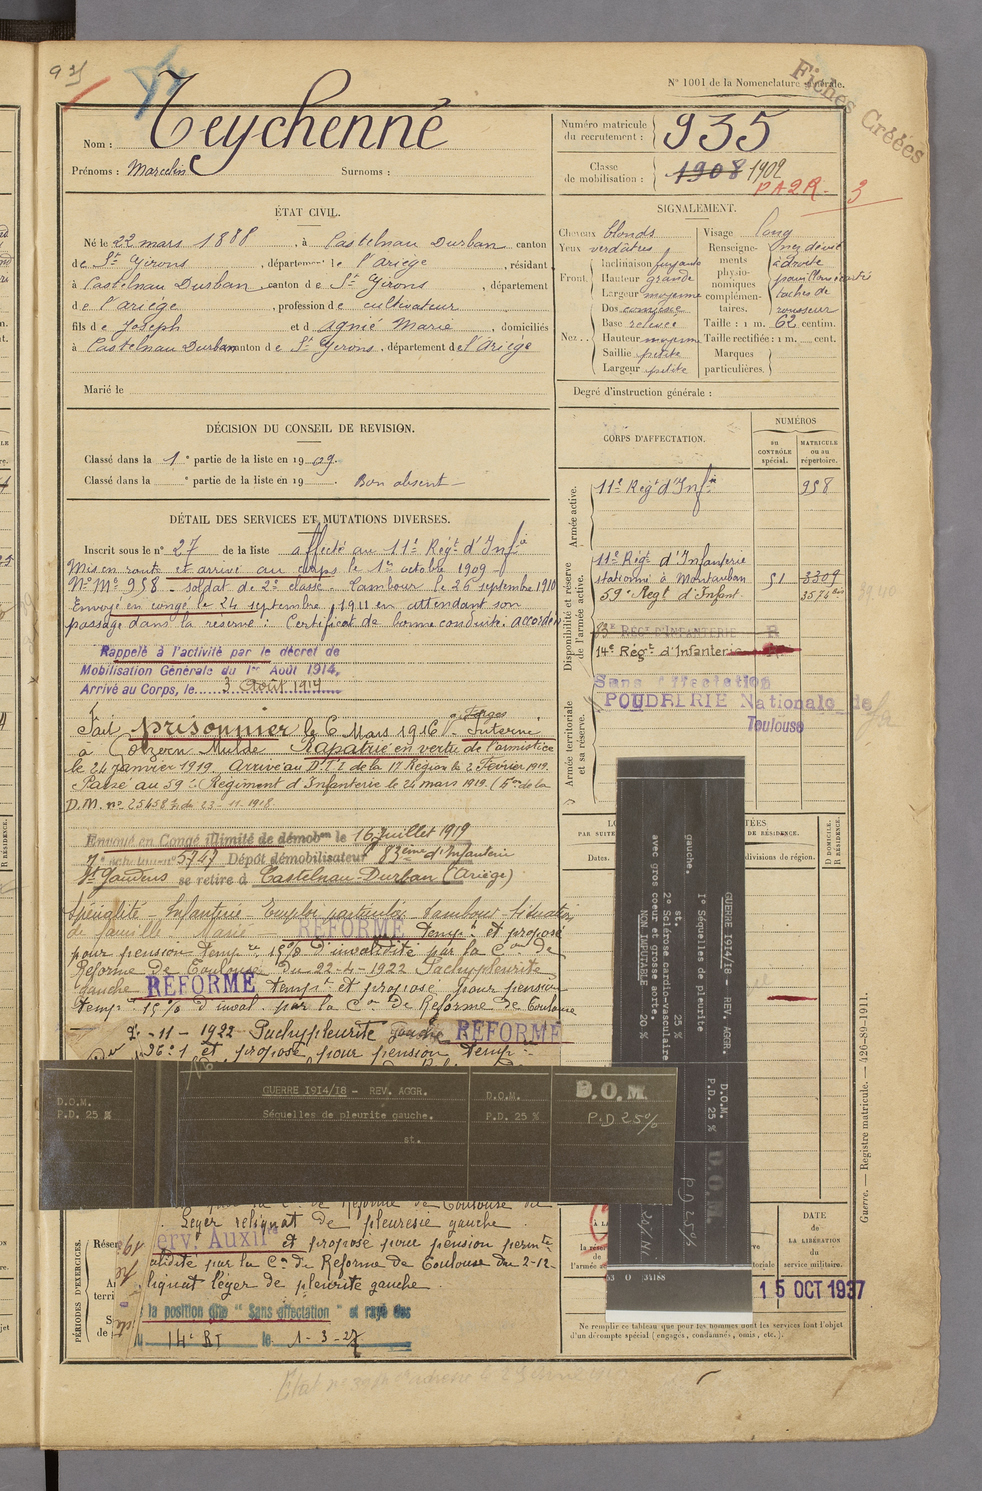 N° 1001 de la Nomenclature générale.
Fiches Créées
Nom : Teychenné
Prénoms : Marcelin Surnoms :
Numéro matricule du recrutement : 935
Classe de mobilisation : 1908 1902
PA2R - 3
ÉTAT CIVIL.
Né le 22 mars 1888, à Castelnau Durban canton
de St Girons, département de l'Ariège, résidant
à Castelnau Durban, canton de St Girons, département
de l'ariège, profession de cultivateur
fils de Joseph et d' Agnié Marie, domiciliés
à Castelnau Durban canton de St Girons, département de l'Ariège
Marié le
SIGNALEMENT.
Cheveux blonds
Yeux verdâtres
Front. Inclinaison fuyante
Hauteur grande
Largeur moyenne
Nez .. Dos
Base relevée
Hauteur moyenne
Saillie petite
Largeur petite
Visage long
Renseignements physionomiques complémentaires. nez dévié
à droite
taches de
rousseur
Taille : 1 m. 62 centim.
Taille rectifiée : 1 m. cent.
Marques particulières.
Degré d'instruction générale :
DÉCISION DU CONSEIL DE REVISION.
Classé dans la 1e partie de la liste en 1909.
Classé dans la e partie de la liste en 19 . Bon absent
DÉTAIL DES SERVICES ET MUTATIONS DIVERSES.
Inscrit sous le n° 27 de la liste affecté au 11e Régt d'Infie
Mis en route et arrivé au corps le 1er octobre 1909
N° Me 958 - soldat de 2e classe. Tambour le 26 septembre 1910
Envoyé en congé le 24 septembre 1911 en attendant son
passage dans la réserve : Certificat de bonne conduite. accordé
Rappelé à l'activité par le décret de
Mobilisation Générale du 1er Août 1914.
Arrivé au Corps, le 3 Août 1914
Fait prisonnier le 6 Mars 1916 à Forges Interné
à Golzern Mulde Rapatrié en vertu de l'armistice
le 24 janvier 1919. Arrivé au D.T.I. de la 17 Région le 2 Février 1919.
Passé au 59e Régiment d'Infanterie le 24 mars 1919.
D.M. n° 25458 du 23-11-1918
Envoyé en Congé illimité de démobon le 16 Juillet 1919
5747 Dépôt démobilisateur 83ème d'Infanterie
St Gaudens se retire à Castelnau-Durban (Ariège)
Spécialité - Infanterie - Emploi particulier Tambour - Situation
de famille - Marié - RÉFORMÉ tempre et proposé
pour pension tempre 15% d'invalidité par la Con de
Réforme de Toulouse du 22-4-1922 Pachypleurite
gauche RÉFORMÉ tempre et proposé pour pension
tempre 15% d'inval. par la Con de Réforme de Toulouse
-11-1922 Pachypleurite gauche RÉFORMÉ
et proposé pour pension tempre
D.O.M.
P.D. 25 %
GUERRE 1914/18 - REV. AGGR.
Séquelles de pleurite gauche.
st.
D.O.M.
P.D. 25 %
D.O.M.
P.D 25%
de Réforme de Toulouse du
Léger reliquat de pleurésie gauche
Serv. Auxil. et proposé pour pension permte
par la Con de Réforme de Toulouse du 2-12
reliquat léger de pleurite gauche
la position dite "Sans affectation" et rayé des
14e BT le 1-3-27
CORPS D'AFFECTATION.
NUMÉROS
au contrôle spécial.
MATRICULE ou au répertoire.
Armée active.
11e Régt d'Infie 958
Disponibilité et réserve de l'armée active.
11e Régt d'Infanterie
stationné à Montauban 51 3309
59e Régt d'Infant 3574 bis
83e RÉGT D'INFANTERIE R
14e Régt d'Infanterie
Armée territoriale et sa réserve.
Sans affectation
POUDRERIE Nationale de
Toulouse
Dates.
divisions de région.
D DOMICILE.
R RÉSIDENCE.
GUERRE 1914/18 - REV. AGGR.
1° Séquelles de pleurite
gauche.
st. 25 %
2° Sclérose cardio-vasculaire
avec gros coeur et grosse aorte.
NON IMPUTABLE 20 %
D.O.M.
P.D. 25 %
D.O.M.
P.D 25%
PÉRIODES D'EXERCICES.
DATE
de
LA LIBÉRATION
du
service militaire.
15 OCT 1937
Ne remplir ce tableau que pour les hommes dont les services font l'objet
d'un décompte spécial (engagés, condamnés, omis, etc.).
Guerre. — Registre matricule. — 426-89-1911.